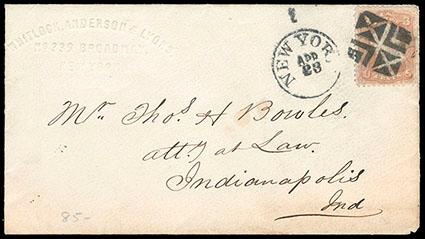 WHITLOCK, ANDERSON & LYONS
NO 239. BROADWAY.
NEW YORK
APR
23
3
Mr Thos H Bowles.
att.y at Law.
Indianapolis
Ind
85-